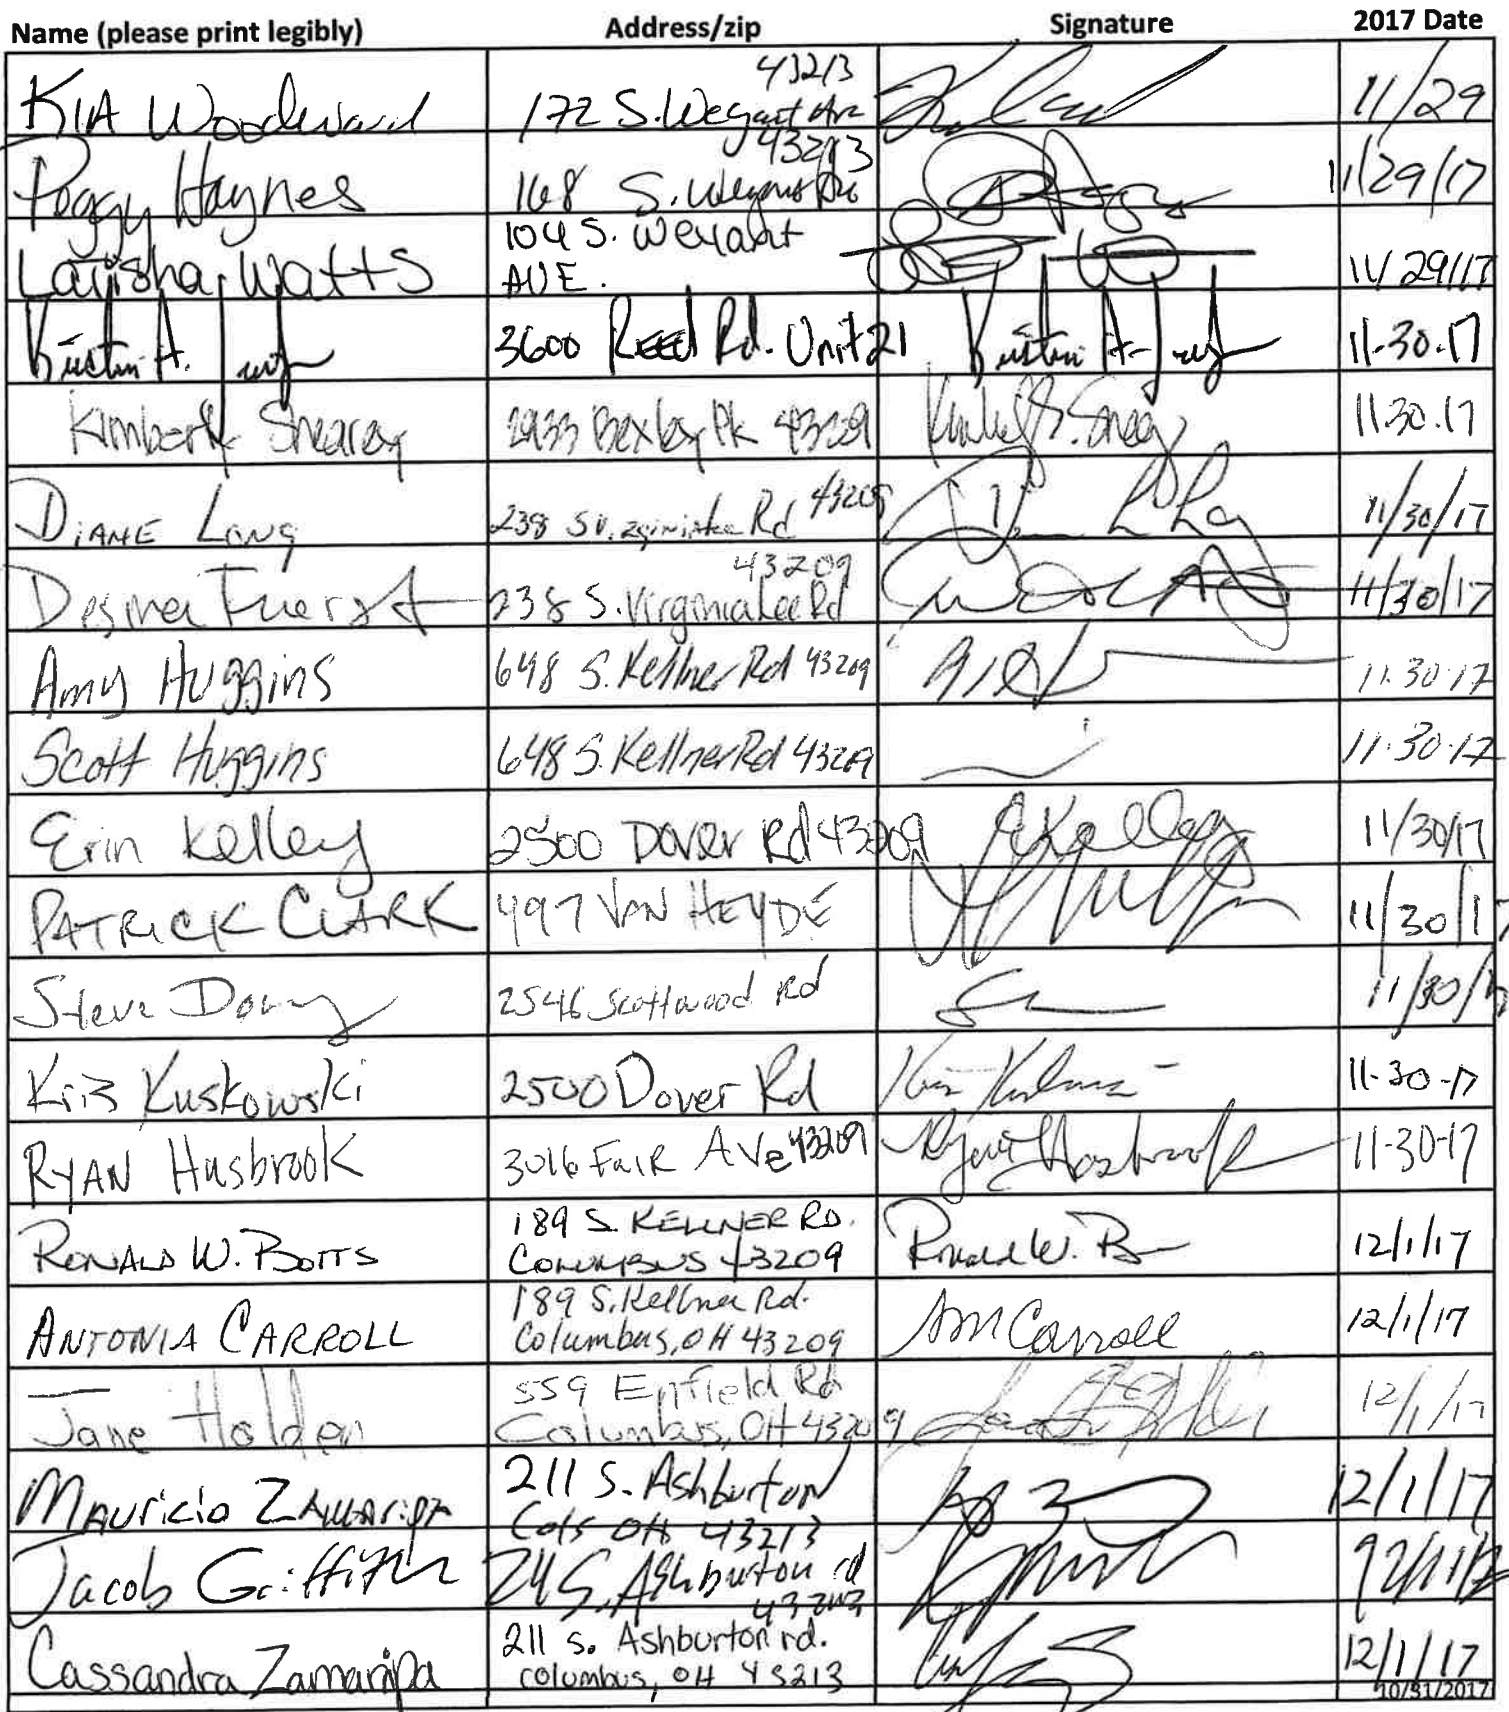 Name (please print legibly) Address/zip Signature 2017 Date
KIA Woodward 172 S. Weyant Ave 43213 11/29
Peggy Haynes 168 S. Weyant Ave 43213 11/29/17
Latisha Watts 104 S. Weyant AVE. 11/29/17
Kristin A. 3600 Reed Rd. Unit 21 Kristin A. 11-30-17
Kimberly Shearer 2933 Bexley Pk 43209 11.30.17
DIANE LONG 238 S Virginia Lee Rd 43209 11/30/17
Desiree Fuerst 238 S. Virginia Lee Rd 43209 11/30/17
Amy Huggins 648 S. Kellner Rd 43209 11.30.17
Scott Huggins 648 S. Kellner Rd 43209 11.30.17
Erin Kelley 2500 Dover Rd 43209 EKelley 11/30/17
PATRICK CLARK 497 VAN HEYDE 11/30/17
Steve 2546 Scottwood Rd 11/30/17
Kris Kuskowski 2500 Dover Rd 11-30-17
RYAN Hasbrook 3016 FAIR AVe 43209 Ryan Hasbrook 11-30-17
RONALD W. BOTTS 189 S. KELLNER RD.
COLUMBUS 43209 Ronald W. B 12/1/17
ANTONIA CARROLL 189 S. Kellner Rd.
Columbus, OH 43209 AM Carroll 12/1/17
Jane Holden 559 Enfield Rd
Columbus, OH 43209 12/1/17
Mauricio ZAMARIPA 211 S. Ashburton
Cols OH 43213 12/1/17
Jacob Griffith 211 S. Ashburton rd
43213 12/1/17
Cassandra Zamaripa 211 S. Ashburton rd.
columbus, OH 43213 12/1/17
10/31/2017